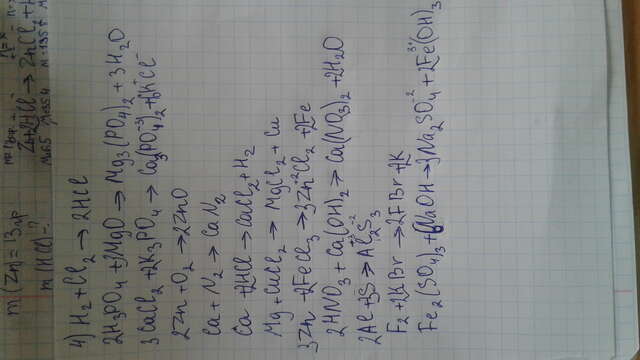 m(Zn) = 13гр
m(HCl) - ?
Zn + 2HCl → ZnCl₂ +
M=65
4) H₂ + Cl₂ → 2HCl
2H₃PO₄ + 3MgO → Mg₃(PO₄)₂ + 3H₂O
3CaCl₂ + 2K₃PO₄ → Ca₃(PO₄⁻³)₂ + 6K⁺Cl⁻
2Zn + O₂ → 2ZnO
Ca + N₂ → CaN₂
Ca + 2HCl → CaCl₂ + H₂
Mg + CuCl₂ → MgCl₂ + Cu
3Zn + 2FeCl₃ → 3Zn⁺²Cl₂ + 2Fe
2HNO₃ + Ca(OH)₂ → Ca(NO₃)₂ + 2H₂O
2Al + 3S → Al₂⁺³S₃⁻²
F₂ + 2KBr → 2FBr + 2K
Fe₂(SO₄)₃ + 6NaOH → 3Na₂SO₄⁻² + 2Fe³⁺(OH)₃